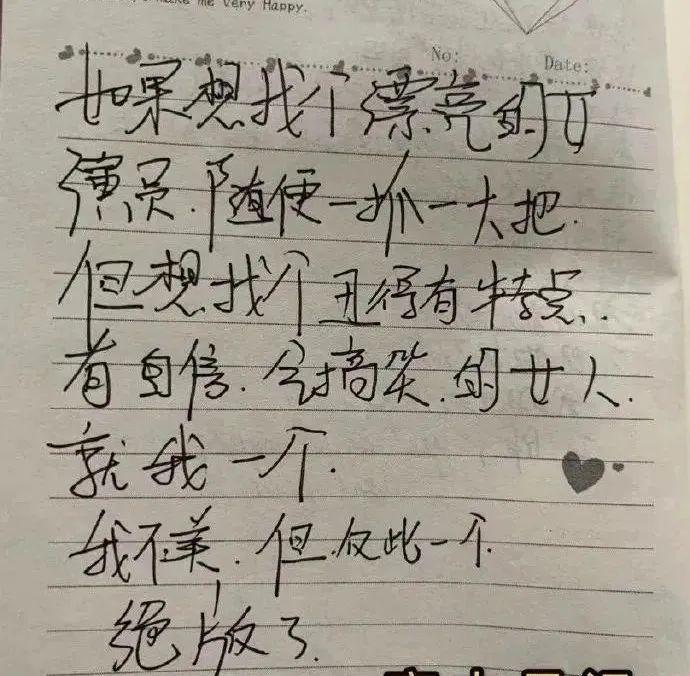 make me Very Happy.
No:
Date:
如果想找个漂亮的女
演员.随便一抓一大把.
但想找个丑得有特点..
有自信.会搞笑.的女人.
就我一个.
我不美.但仅此一个.
绝版了.